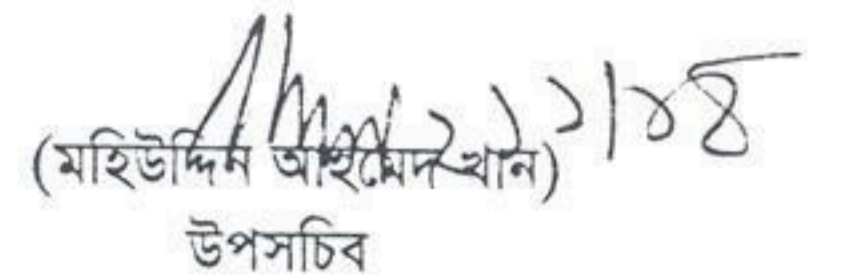 (মহিউদ্দিন আহমেদ খান)
উপসচিব